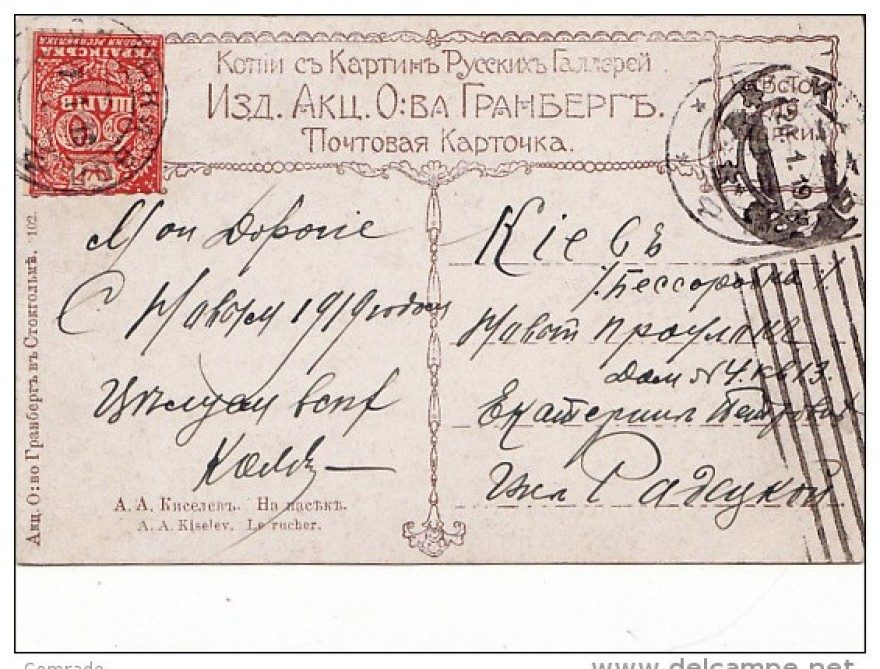 Копіи съ Картинъ Русскихъ Галлерей
Изд. Акц. О:ва Гранбергъ.
Почтовая Карточка.
УКРАЇНСЬКА
НАРОДНЯ РЕСПУБЛІКА
ШАГІВ
Мои Дорогіе
С Новым 1919 годом
Цѣлую всѣх
Коля
Кіевъ
/Бессарабка/
дом № 4. кв 13.
Екатерине Петровне
Акц. О:во Гранбергъ въ Стокгольмѣ. 102.
А. А. Киселевъ. На пасѣкѣ.
A. A. Kiselev. Le rucher.
Comrade
www.delcampe.net